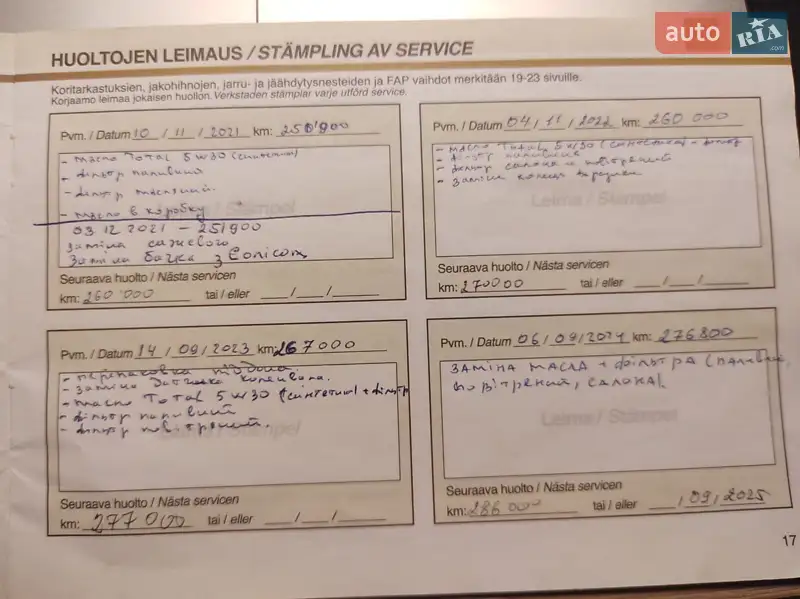 auto RIA.com
HUOLTOJEN LEIMAUS / STÄMPLING AV SERVICE
Koritarkastuksien, jakohihnojen, jarru- ja jäähdytysnesteiden ja FAP vaihdot merkitään 19-23 sivuille.
Korjaamo leimaa jokaisen huollon. Verkstaden stämplar varje utförd service.
Pvm. / Datum 10 / 11 / 2021 km: 250'900
- масло Total 5w30 (синтетика)
- фільтр паливний
- фільтр масляний.
- масло в коробку
03.12.2021 - 251900
Заміна
Заміна бачка з
Seuraava huolto / Nästa servicen
km: 260'000 tai / eller __/__/__
Pvm. / Datum 04 / 11 / 2022 km: 260 000
- масло Total 5w30 (синтетика) + фільтр
- фільтр паливний
- фільтр салона и повітряний
- заміна
Leima / Stämpel
Seuraava huolto / Nästa servicen
km: 270000 tai / eller __/__/__
Pvm. / Datum 14 / 09 / 2023 km: 267000
- заміна датчика
- масло Total 5w30 (синтетика) + фільтр
- фільтр паливний
- фільтр повітряний.
Seuraava huolto / Nästa servicen
km: 277 000 tai / eller __/__/__
Pvm. / Datum 06 / 09 / 2024 km: 276800
заміна масла + фільтра (палив
повітряний, салона).
Leima / Stämpel
Seuraava huolto / Nästa servicen
km: 286 000 tai / eller __/09/2025
17